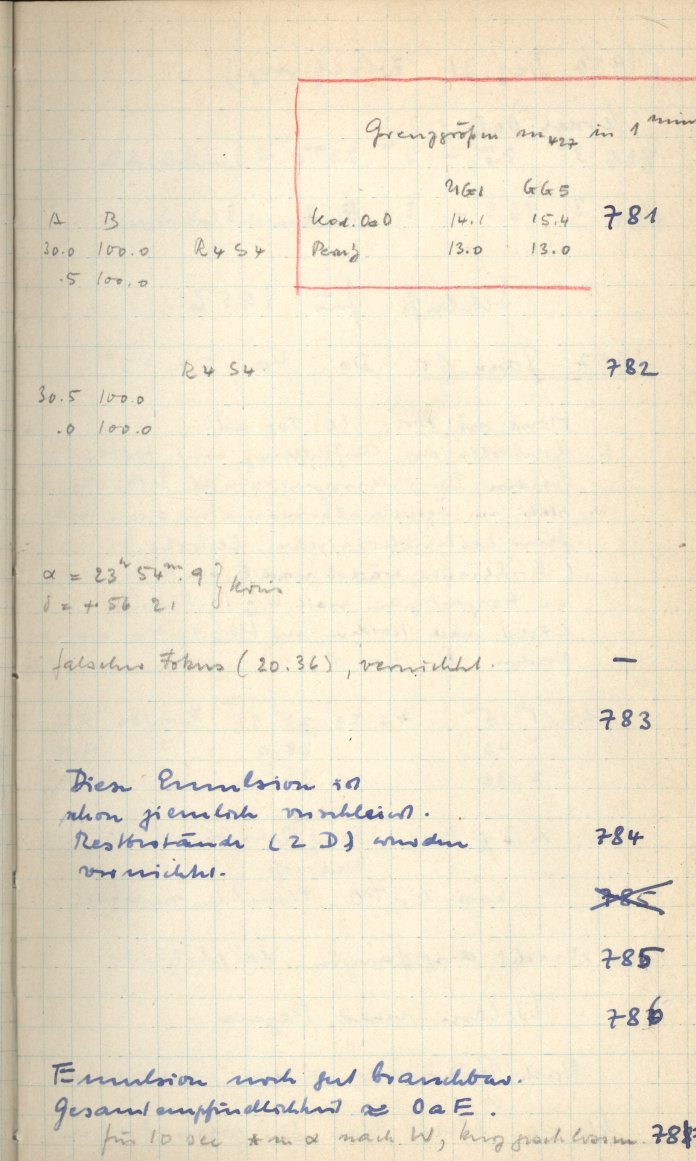 Grenzgrößen m₄₂₇ in 1 min
UG1 GG5
Kod. OaO 14.1 15.4 781
13.0 13.0
A B
30.0 100.0 R4 S4
.5 100.0
R4 S4 782
30.5 100.0
.0 100.0
α = 23ʰ 54ᵐ.9
δ = + 56 21
falscher Fokus (20.36), vernichtet. —
783
Diese Emulsion ist
schon ziemlich verschleiert.
Restbestände (2 D) wurden 784
vernichtet.
785
785
786
Emulsion noch gut brauchbar.
Gesamtempfindlichkeit ≈ OaE.
für 10 sec * in α nach W, kurz geschlossen.